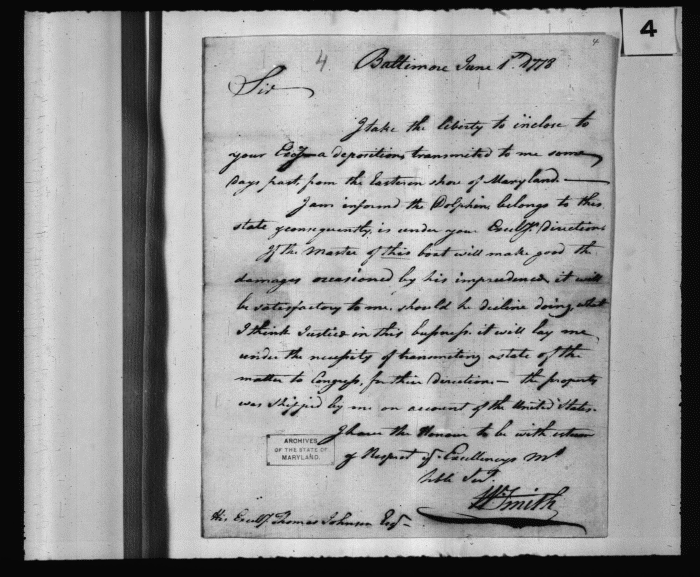 4
4
4
Baltimore June 1st 1778
Sir
I take the liberty to inclose to
your Excy a deposition, transmited to me some
days past, from the Eastern shore of Maryland.
I am informd the Dolphin, belongs to this
state & consequently, is under your Excelys directions
If the Master of this boat will make good the
damages occasioned by his imprudence, it will
be satisfactory to me, should he decline doing what
I think Justice in this business, it will lay me
under the necessity of transmiting a state of the
matter to Congress, for their directions — the property
was shipped by me on account of the United States.
I have the Honour to be with esteem
& Respect yr Excellencys Mt
hble Servt.
Wm Smith
ARCHIVES
OF THE STATE OF
MARYLAND.
His Excely Thomas Johnson Esqr